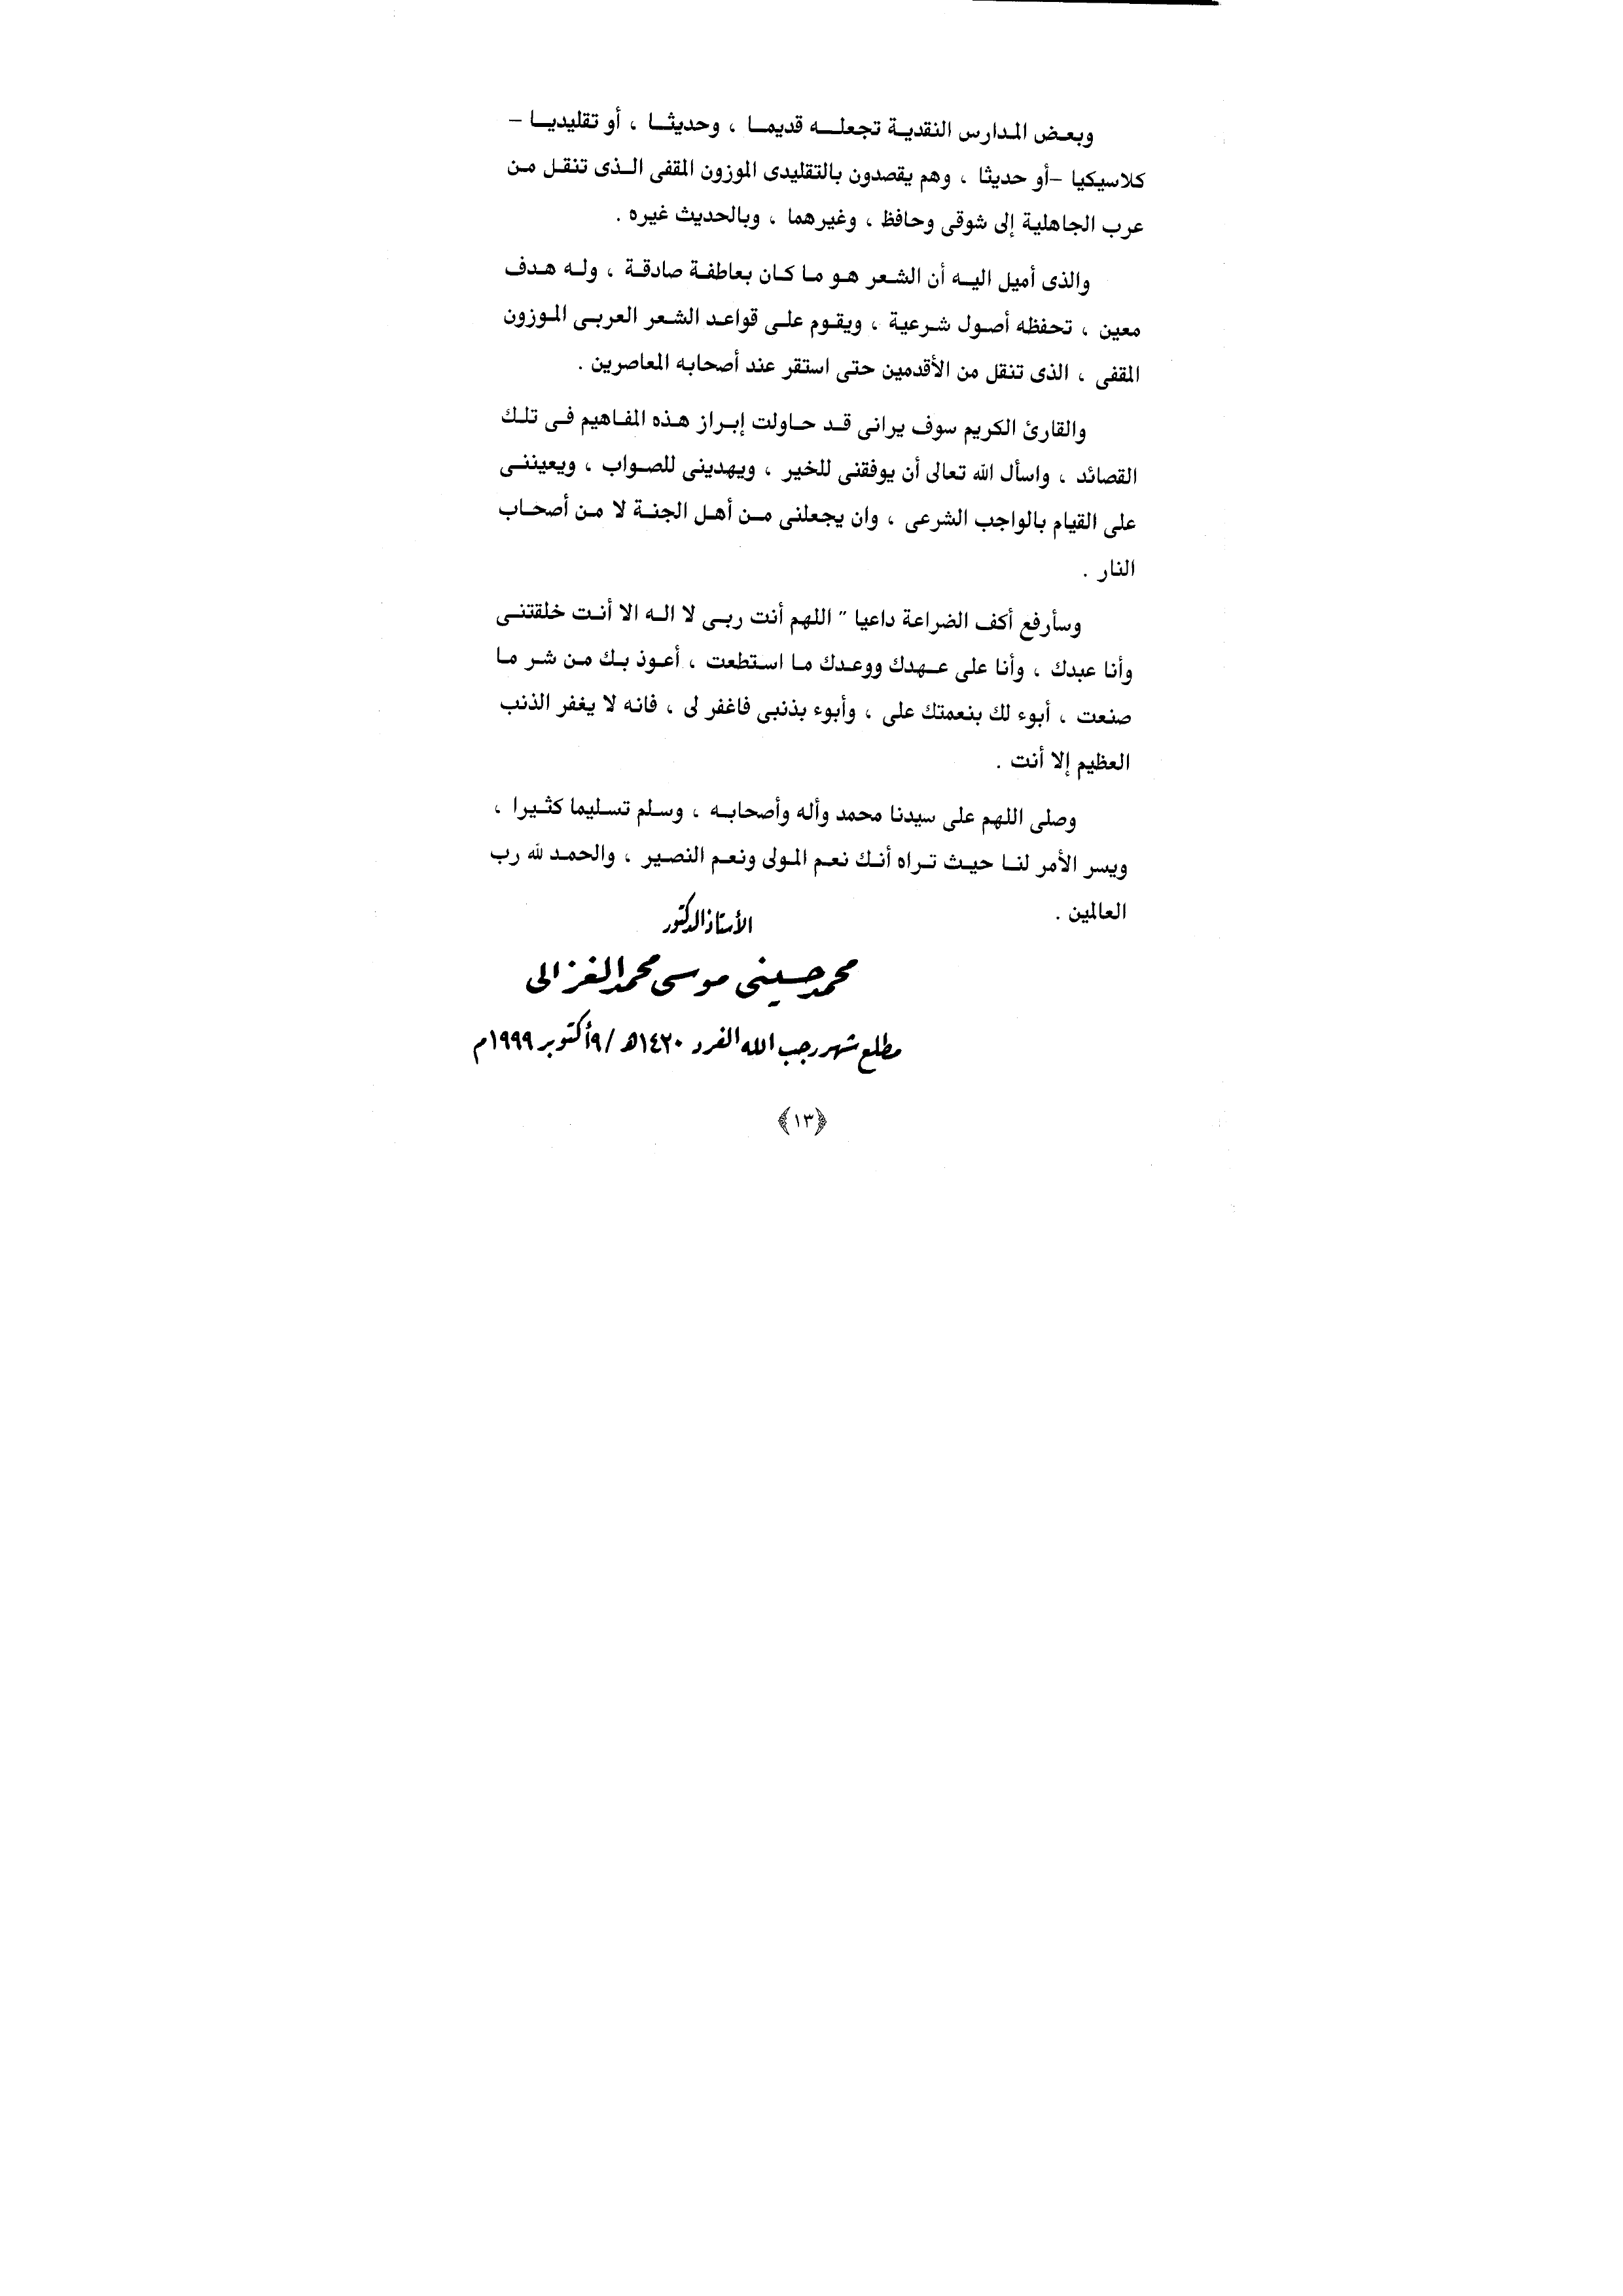 وبعض المدارس النقدية تجعله قديما ، وحديثا ، أو تقليديا –
كلاسيكيا –أو حديثا ، وهم يقصدون بالتقليدى الموزون المقفى الذى تنقل من
عرب الجاهلية إلى شوقى وحافظ ، وغيرهما ، وبالحديث غيره .
والذى أميل اليه أن الشعر هو ما كان بعاطفة صادقة ، وله هدف
معين ، تحفظه أصول شرعية ، ويقوم على قواعد الشعر العربى الموزون
المقفى ، الذى تنقل من الأقدمين حتى استقر عند أصحابه المعاصرين .
والقارئ الكريم سوف يرانى قد حاولت إبراز هذه المفاهيم فى تلك
القصائد ، واسأل الله تعالى أن يوفقنى للخير ، ويهدينى للصواب ، ويعيننى
على القيام بالواجب الشرعى ، وان يجعلنى من أهل الجنة لا من أصحاب
النار .
وسأرفع أكف الضراعة داعيا " اللهم أنت ربى لا اله الا أنت خلقتنى
وأنا عبدك ، وأنا على عهدك ووعدك ما استطعت ، أعوذ بك من شر ما
صنعت ، أبوء لك بنعمتك على ، وأبوء بذنبى فاغفر لى ، فانه لا يغفر الذنب
العظيم إلا أنت .
وصلى اللهم على سيدنا محمد وأله وأصحابه ، وسلم تسليما كثيرا ،
ويسر الأمر لنا حيث تراه أنك نعم المولى ونعم النصير ، والحمد لله رب
العالمين .
الأستاذ الدكتور
محمد حسينى موسى محمد الغزالى
مطلع شهر رجب الله الفرد ١٤٢٠هـ / ٩ أكتوبر ١٩٩٩م
﴿١٣﴾